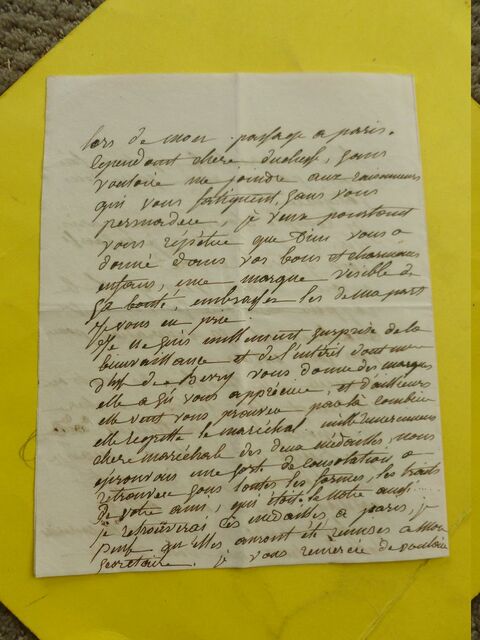 lors de mon passage a paris.
Cependant chere duchesse, sans
vouloire me joindre aux raisonneurs
qui vous fatiguent, sans vous
persuader, je veux pourtant
vous répétée que Dieu vous a
donné dans vos bons et charmans
enfans, une marque visible de
sa bonté, embrassez les de ma part
je vous en prie.
Je ne suis nullement surprise de la
bienvaillance et de l'intérêt dont me
de Berry vous donne des marques
elle a sû vous apprécier, et d'ailleurs
elle veut vous prouver par la combien
elle regrette le maréchal. mille
chere maréchale des deux médailles, nous
éprouvons une sorte de consolation a
retrouver sous toutes les formes, les traits
de votre ami, qui était le notre aussi
je retrouverai ces médailles a paris, je
pense qu'elles auront été remises a mon
secretaire. je vous remercie de vouloir